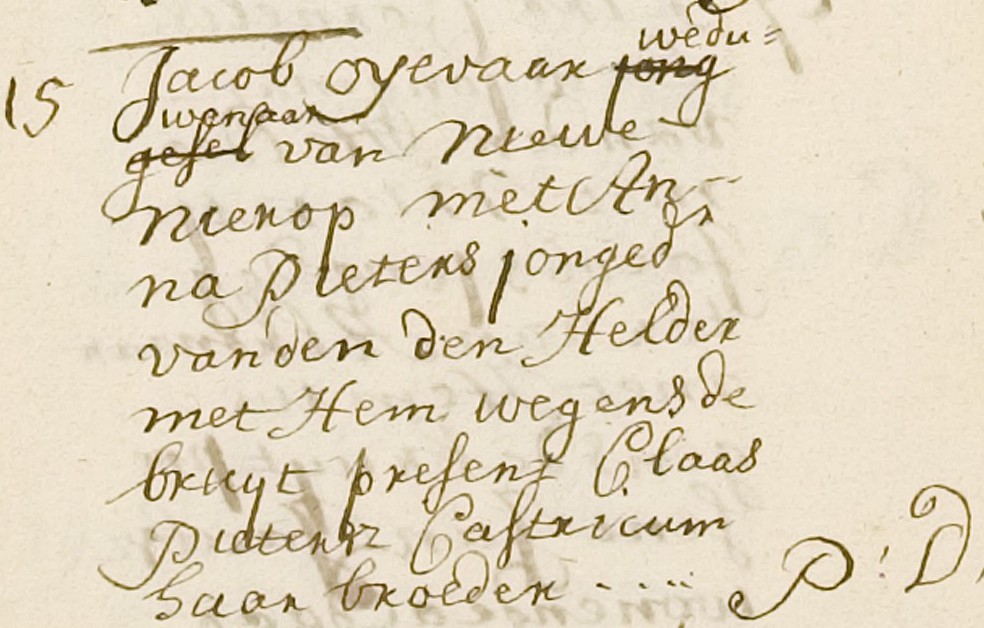 wedu=
15 Jacob oyevaar jong
wenaar
gesel van Niewe
Nierop met An-
na Pieters jonged^r
vanden den Helder
met Hem wegens de
bruyt present Claas
Pietersz Castricum
haar broeder ..... P: D.